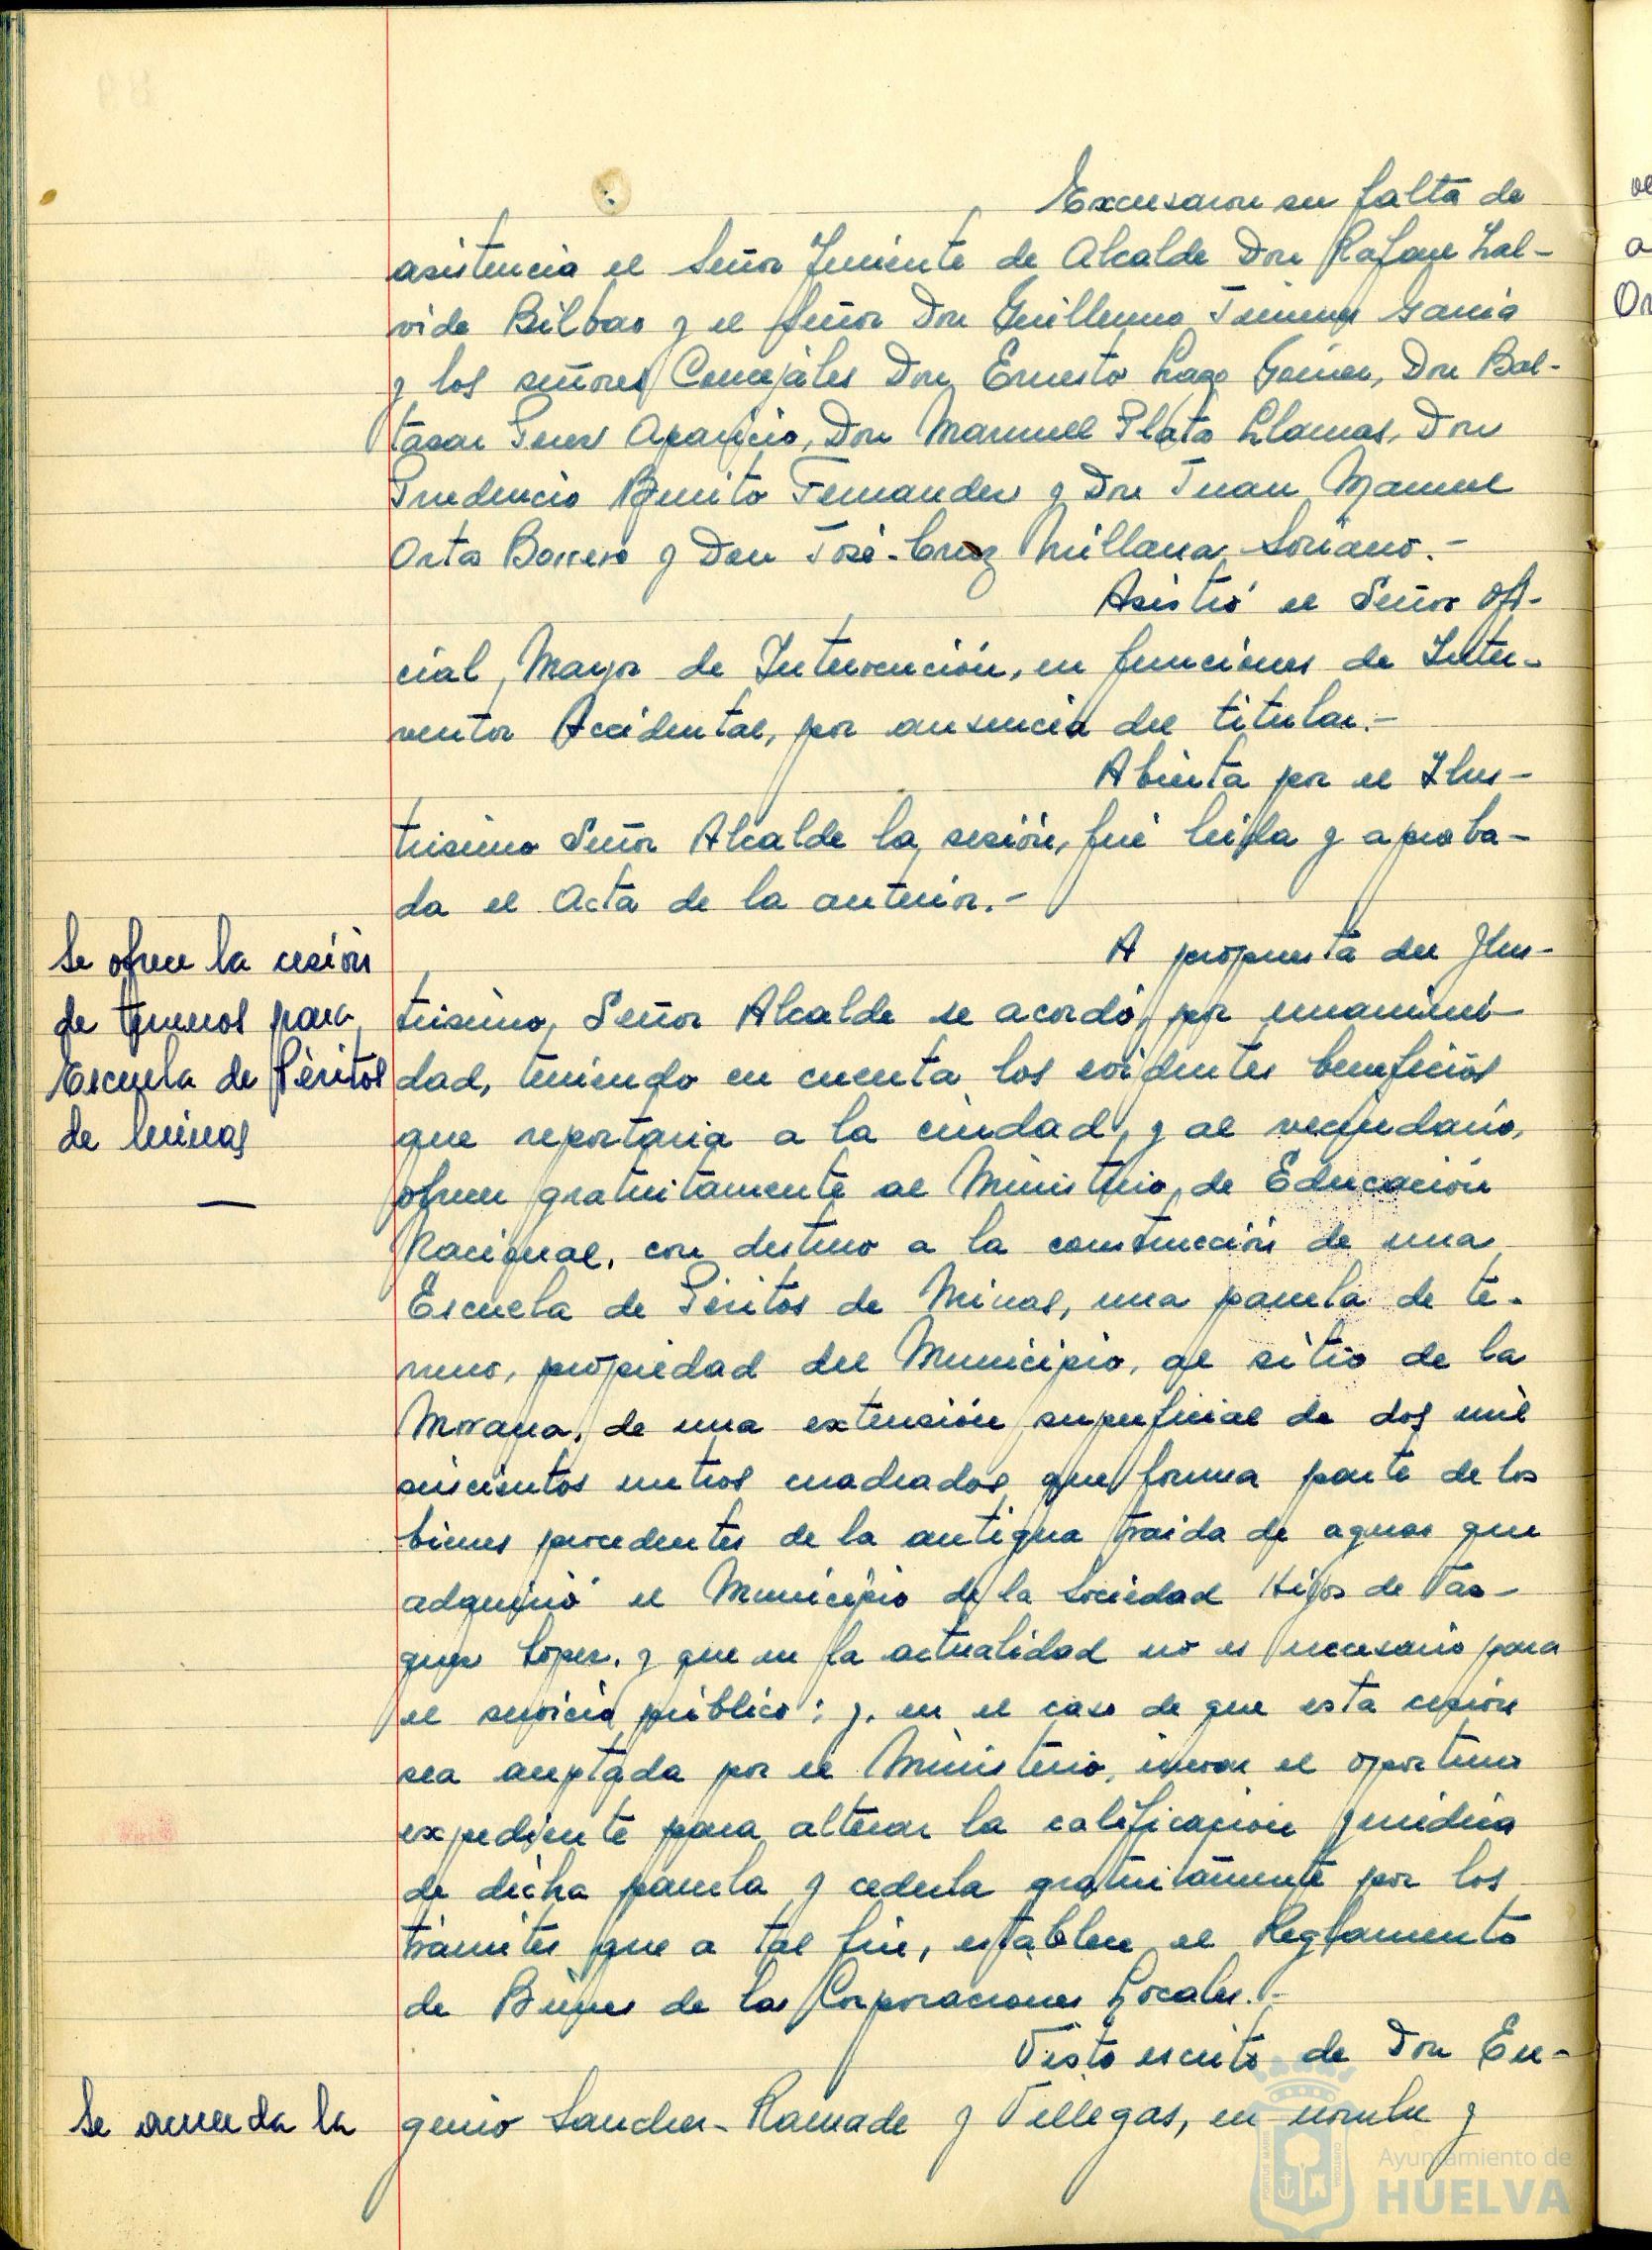 Excusaron su falta de
asistencia el Señor Teniente de Alcalde Don Rafael Gal-
vido Bilbao y el Señor Don Guillermo Jimenez Garcia
y los señores Concejales Don Ernesto Lazo Gomez, Don Bal-
tasar Perez Aparicio, Don Manuel Plata Llamas, Don
Prudencio Benito Fernandez y Don Juan Manuel
Orta Borrero y Don José-Cruz Millana Soriano.-
Asistió el Señor Ofi-
cial Mayor de Intervención, en funciones de Inter-
ventor Accidental, por ausencia del titular.-
Abierta por el Ilus-
trisimo Señor Alcalde la sesión, fué leida y aproba-
da el Acta de la anterior.-
Se ofrece la cesión
de terrenos para
Escuela de Péritos
de minas
A propuesta del Ilus-
trisimo Señor Alcalde se acordó, por unanimi-
dad, teniendo en cuenta los evidentes beneficios
que reportaria a la ciudad, y al vecindario,
ofrecer gratuitamente al Ministerio de Educación
Nacional, con destino a la construcción de una
Escuela de Péritos de Minas, una parcela de te-
rreno, propiedad del Municipio, al sitio de la
Morana, de una extensión superficial de dos mil
seiscientos metros cuadrados que forma parte de los
bienes procedentes de la antigua traida de aguas que
adquirió el Municipio de la Sociedad Hijos de Vaz-
quez Lopez, y que en la actualidad no es necesario para
el servicio público; y, en el caso de que esta cesión
sea aceptada por el Ministerio, incoar el oportuno
expediente para alterar la calificación juridica
de dicha parcela y cederla gratuitamente por los
trámites que a tal fin, establece el Reglamento
de Bienes de las Corporaciones Locales.-
Visto escrito de Don Eu-
Se acuerda la
genio Sanchez-Ramade y Villegas, en nombre y
Ayuntamiento de
HUELVA